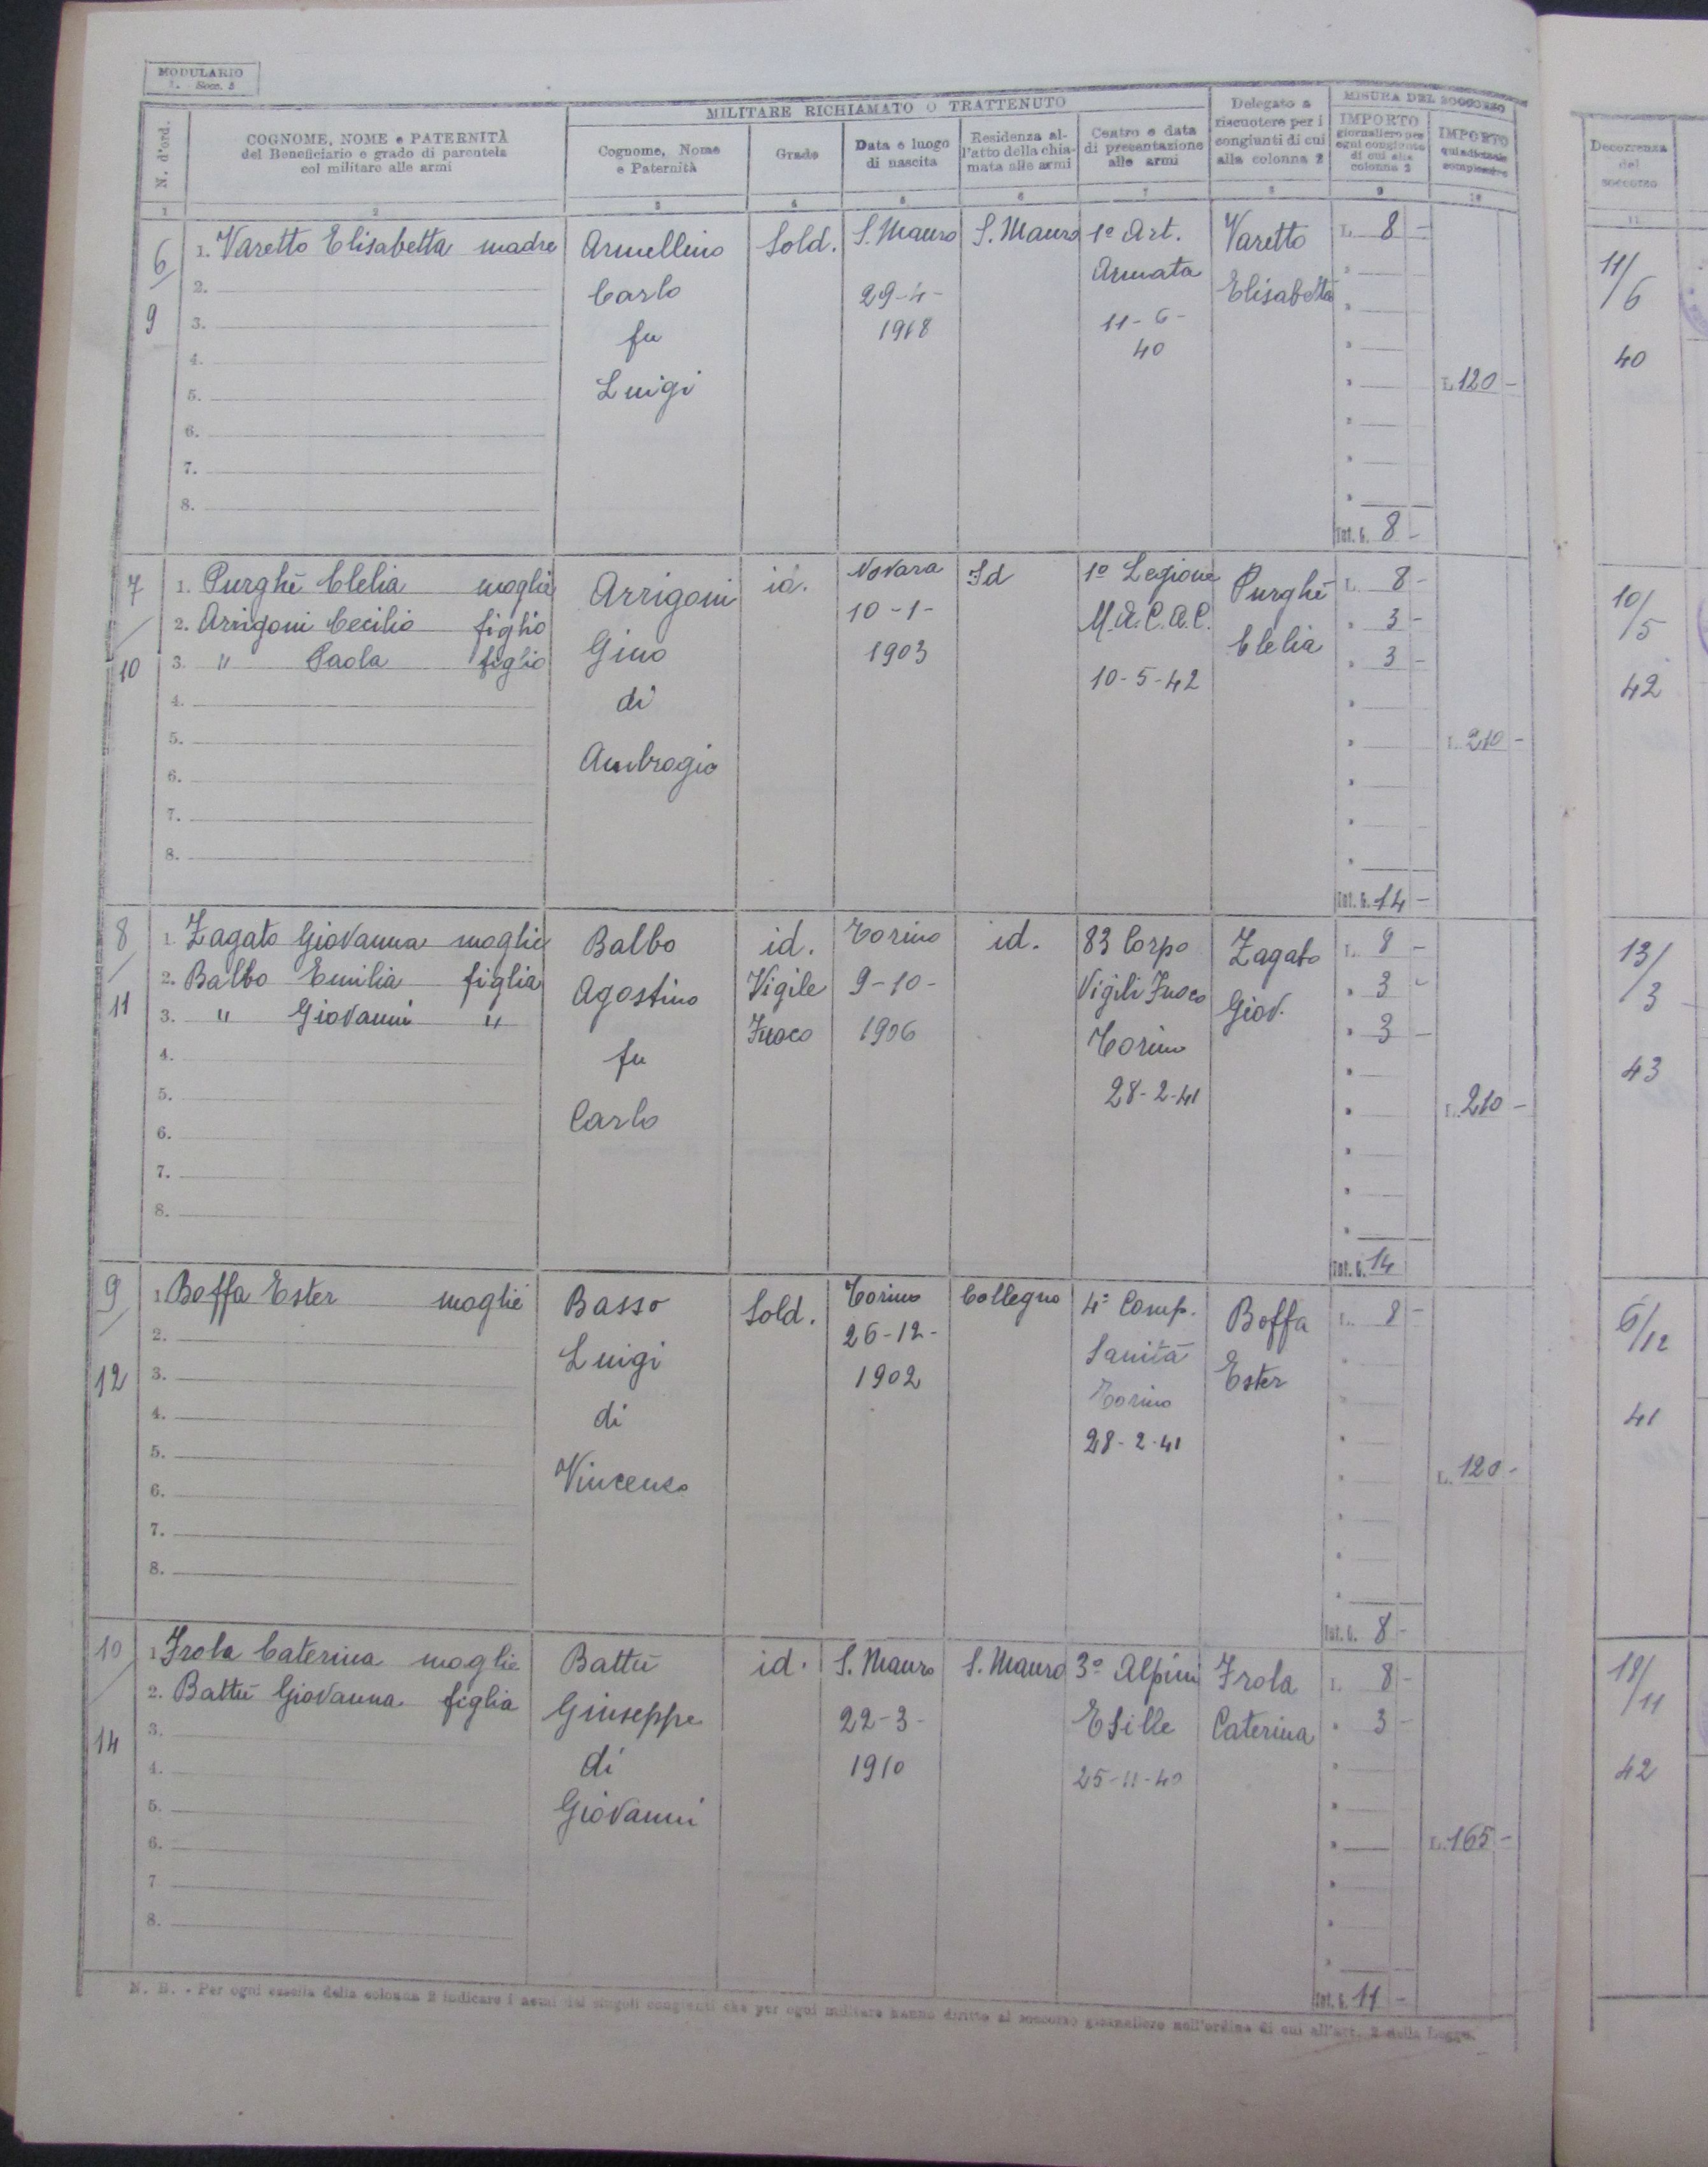 MODULARIO
I. - Socc. 3
MILITARE RICHIAMATO O TRATTENUTO
MISURA DEL SOCCORSO
N. d'ord.
COGNOME, NOME e PATERNITÀ
del Beneficiario e grado di parentela
col militare alle armi
Cognome, Nome
e Paternità
Grado
Data e luogo
di nascita
Residenza al-
l'atto della chia-
mata alle armi
Centro e data
di presentazione
alle armi
Delegato a
riscuotere per i
congiunti di cui
alla colonna 2
IMPORTO
giornaliero per
ogni congiunto
di cui alla
colonna 2
IMPORTO
quindicinale
complessivo
Decorrenza
del
soccorso
1 2 3 4 5 6 7 8 9 10 11
6/9
1. Varetto Elisabetta madre
2.
3.
4.
5.
6.
7.
8.
Armellino
Carlo
fu
Luigi
Sold.
S. Mauro
29-4-
1918
S. Mauro
1º Art.
Armata
11-6-
40
Varetto
Elisabetta
L. 8 -
Tot. G. 8 -
L. 120 -
11/6
40
7/10
1. Purghè Clelia moglie
2. Arrigoni Cecilio figlio
3. " Paola figlio
4.
5.
6.
7.
8.
Arrigoni
Gino
di
Ambrogio
id.
Novara
10-1-
1903
Id
1º Legione
M.A.C.A.C.
10-5-42
Purghè
Clelia
L. 8 -
" 3 -
" 3 -
Tot. G. 14 -
L. 210 -
10/5
42
8/11
1. Zagato Giovanna moglie
2. Balbo Emilia figlia
3. " Giovanni "
4.
5.
6.
7.
8.
Balbo
Agostino
fu
Carlo
id.
Vigile
Fuoco
Torino
9-10-
1906
id.
83 Corpo
Vigili Fuoco
Torino
28-2-41
Zagato
Giov.
L. 8 -
" 3 -
" 3 -
Tot. G. 14
L. 210 -
13/3
43
9/12
1. Boffa Ester moglie
2.
3.
4.
5.
6.
7.
8.
Basso
Luigi
di
Vincenzo
Sold.
Torino
26-12-
1902
Collegno
4ª Comp.
Sanità
Torino
28-2-41
Boffa
Ester
L. 8 -
Tot. G. 8 -
L. 120 -
6/12
41
10/14
1. Frola Caterina moglie
2. Battù Giovanna figlia
3.
4.
5.
6.
7
8.
Battù
Giuseppe
di
Giovanni
id.
S. Mauro
22-3-
1910
S. Mauro
3º Alpini
Esille
25-11-40
Frola
Caterina
L. 8 -
" 3 -
Tot. G. 11 -
L. 165 -
18/11
42
N. B. - Per ogni casella della colonna 2 indicare i nomi dei singoli congiunti che per ogni militare hanno diritto al soccorso giornaliero nell'ordine di cui all'art. 2 della Legge.